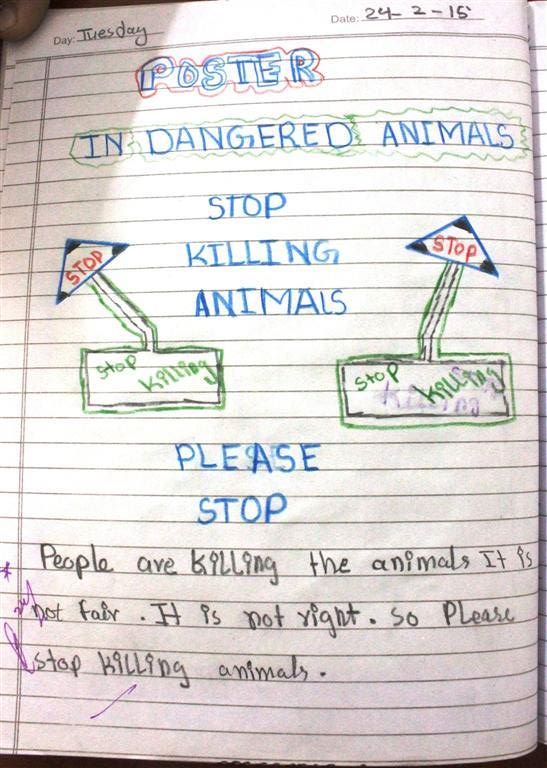 Day: Tuesday
Date: 24-2-15
POSTER
IN DANGERED ANIMALS
STOP
KILLING
ANIMALS
STOP
stop killing
STOP
stop killing
PLEASE
STOP
* People are killing the animals It is
not fair. It is not right. so Please
stop killing animals.